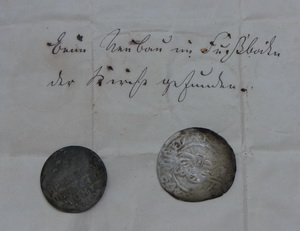 Beim Neubau im Fußboden
der Kirche gefunden.